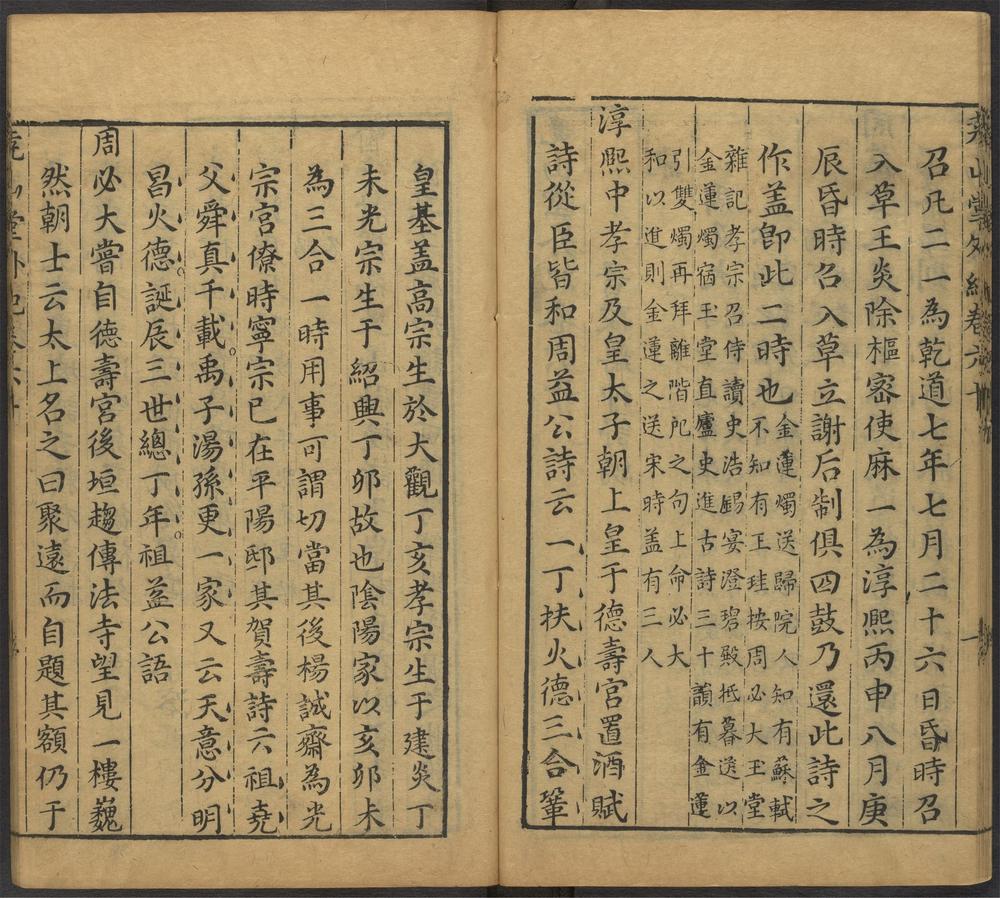 堯山堂外紀卷六十
召凡二一為乾道七年七月二十六日昏時召
入草王炎除樞密使麻一為淳熙丙申八月庚
辰昏時召入草立謝后制俱四鼓乃還此詩之
作盖即此二時也金蓮燭送歸院人知有蘇軾
不知有王珪按周必大玉堂
雜記孝宗召侍讀史浩錫宴澄碧殿抵暮送以
金蓮燭宿玉堂直廬史進古詩三十韻有金蓮
引雙燭再拜離階戺之句上命必大
和以進則金蓮之送宋時盖有三人
淳熙中孝宗及皇太子朝上皇于德壽宮置酒賦
詩從臣皆和周益公詩云一丁扶火德三合鞏
皇基盖高宗生於大觀丁亥孝宗生于建炎丁
未光宗生于紹興丁卯故也陰陽家以亥卯未
為三合一時用事可謂切當其後楊誠齋為光
宗宮僚時寧宗已在平陽邸其賀壽詩云祖堯
父舜真千載禹子湯孫更一家又云天意分明
昌火德誕辰三世總丁年祖益公語
周必大嘗自德壽宮後垣趨傳法寺望見一樓巍
然朝士云太上名之曰聚遠而自題其額仍于
堯山堂外紀卷六十